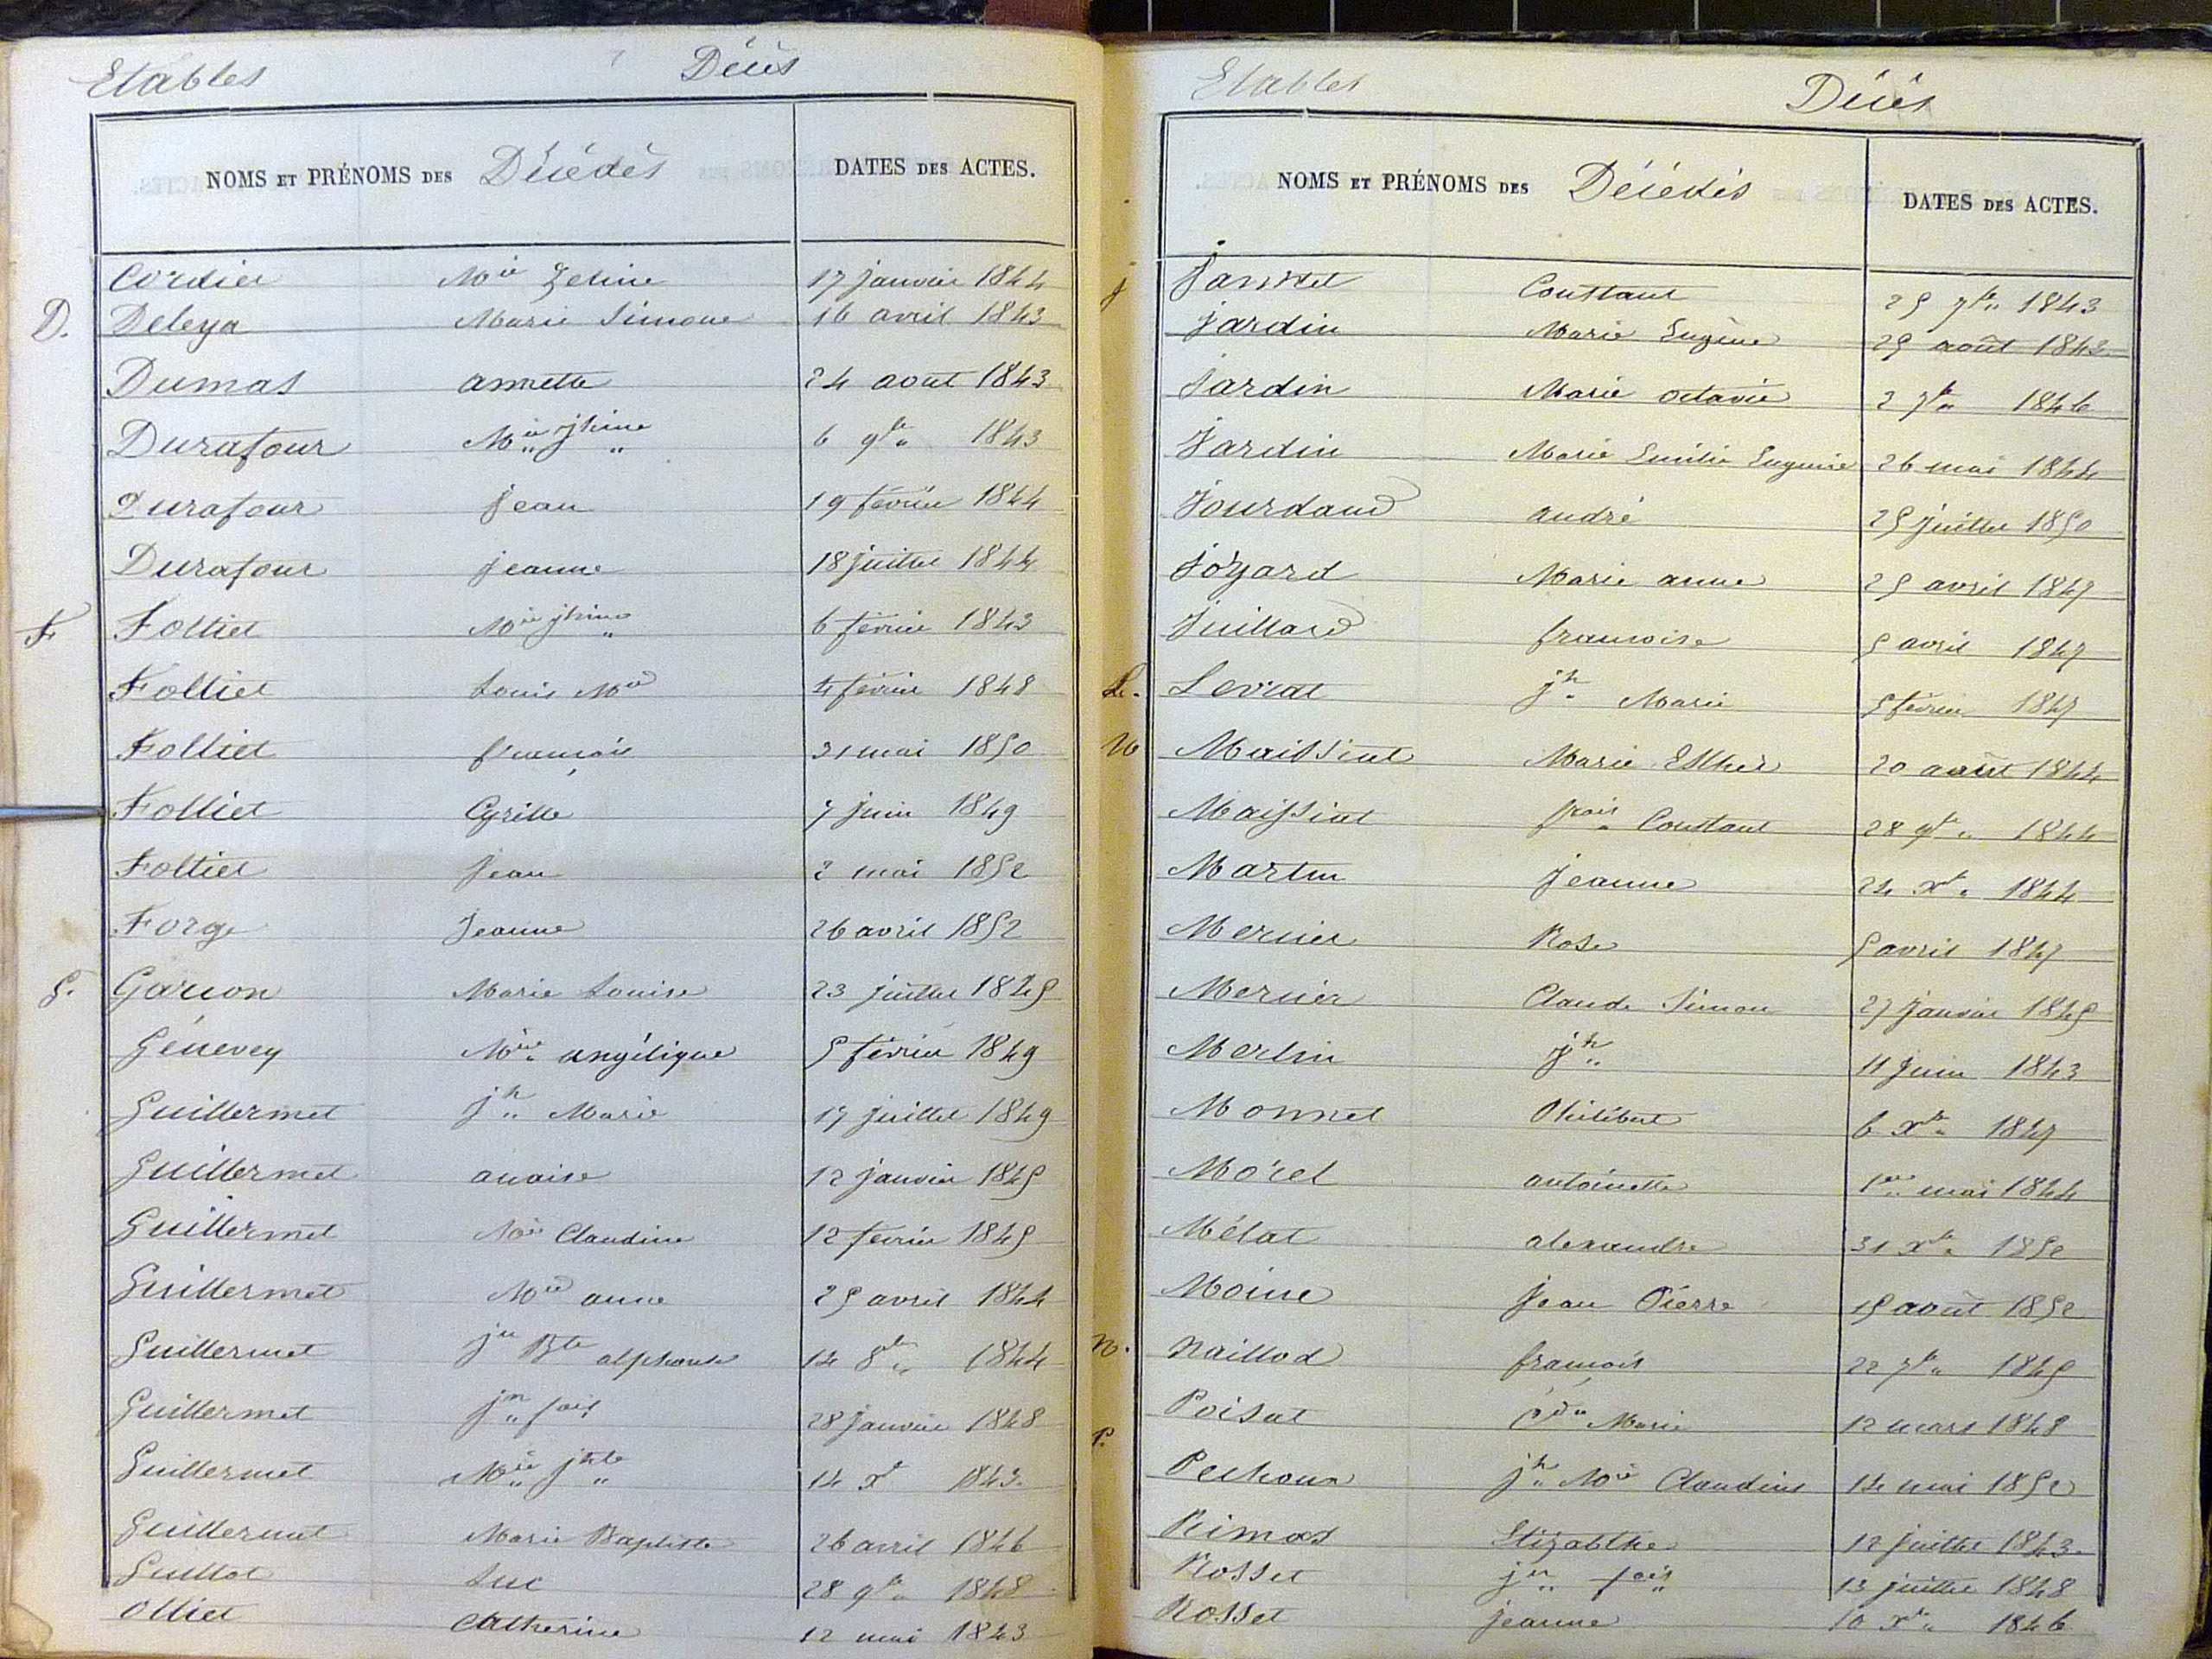 Etables Décès
NOMS ET PRÉNOMS DES Décédés DATES DES ACTES.
Cordier Mie Zeline 17 janvier 1844
D. Deleya Marie Simone 16 avril 1843
Dumas annette 24 aout 1843
Durafour Mie jhine 6 9bre 1843
Durafour jean 19 février 1844
Durafour jeanne 18 juillet 1844
F Folliet Mie jhine 6 février 1843
Folliet Louis Mie 4 février 1848
Folliet françois 31 mai 1850
Folliet Cyrille 7 juin 1849
Folliet jean 2 mai 1852
Forge Jeanne 26 avril 1852
G. Garcon Marie Louise 23 juillet 1845
Génevey Mie angélique 5 février 1849
Guillermet jh Marie 17 juillet 1849
Guillermet anaise 12 janvier 1845
Guillermet Mie Claudine 12 fevrier 1845
Guillermet Mie anne 25 avril 1844
Guillermet jn Bte alphonse 14 8bre 1844
Guillermet jn fois 28 janvier 1848
Guillermet Mie jhte 14 xbre 1843
Guillermet Marie Baptiste 26 avril 1846
Guillot Luc 28 9bre 1848
Olliet Catherine 12 mai 1843
Etables Décès
NOMS ET PRÉNOMS DES Décédés DATES DES ACTES.
J Constant 25 7bre 1843
Jardin Marie Eugène 29 août 1843
Jardin Marie octavie 2 7bre 1846
Jardin Marie Emilie Eugenie 26 mai 1844
Jourdand andré 25 juillet 1850
Joyard Marie anne 25 avril 1847
Juillard francoise 5 avril 1847
L. Levrat jh Marie 5 février 1847
M Maissiat Marie Esther 20 août 1844
Maissiat fcois Constant 28 9bre 1844
Martin jeanne 24 xbre 1844
Mercier Rose 5 avril 1847
Mercier Claude Simon 27 janvier 1845
Merlin jh 11 juin 1843
Monnet Philibert 6 xbre 1847
Morel antoinette 1er mai 1844
Mélat alexandre 31 xbre 1850
Moine Jean Pierre 15 août 1852
N. Naillod françois 22 7bre 1845
Poisat Marie 12 mars 1848
P. Pechoux jh Mie Claudius 14 mai 1852
Rimod Elizabthe 12 juillet 1843
Rosset jn fois 13 juillet 1848
Rosset jeanne 10 xbre 1846